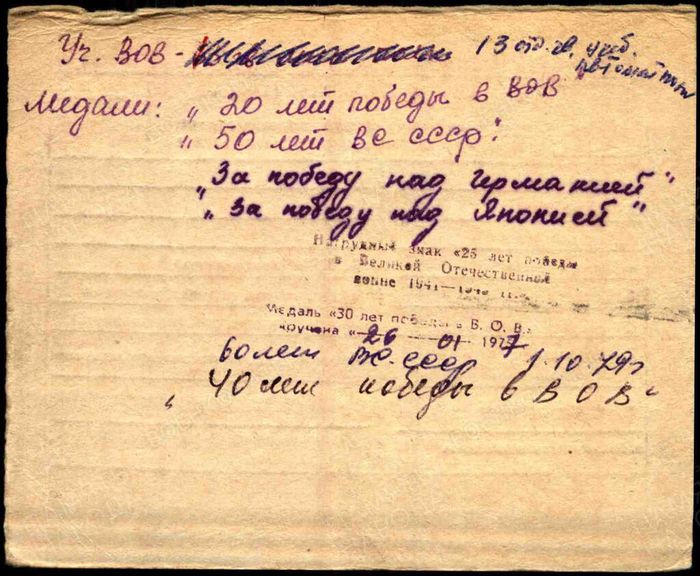 Уч. ВОВ - 13 отд. гв. учеб.
автоматчик
Медали: „20 лет победы в ВОВ"
„50 лет ВС СССР".
„За победу над Германией"
„За победу над Японией"
Нагрудный знак «25 лет победы
в Великой Отечественной
войне 1941—1945 гг.»
Медаль «30 лет победы в В. О. В.»
вручена «26 01 1977
60 лет ВС. СССР 1.10.79г
„40 лет победы в ВОВ"